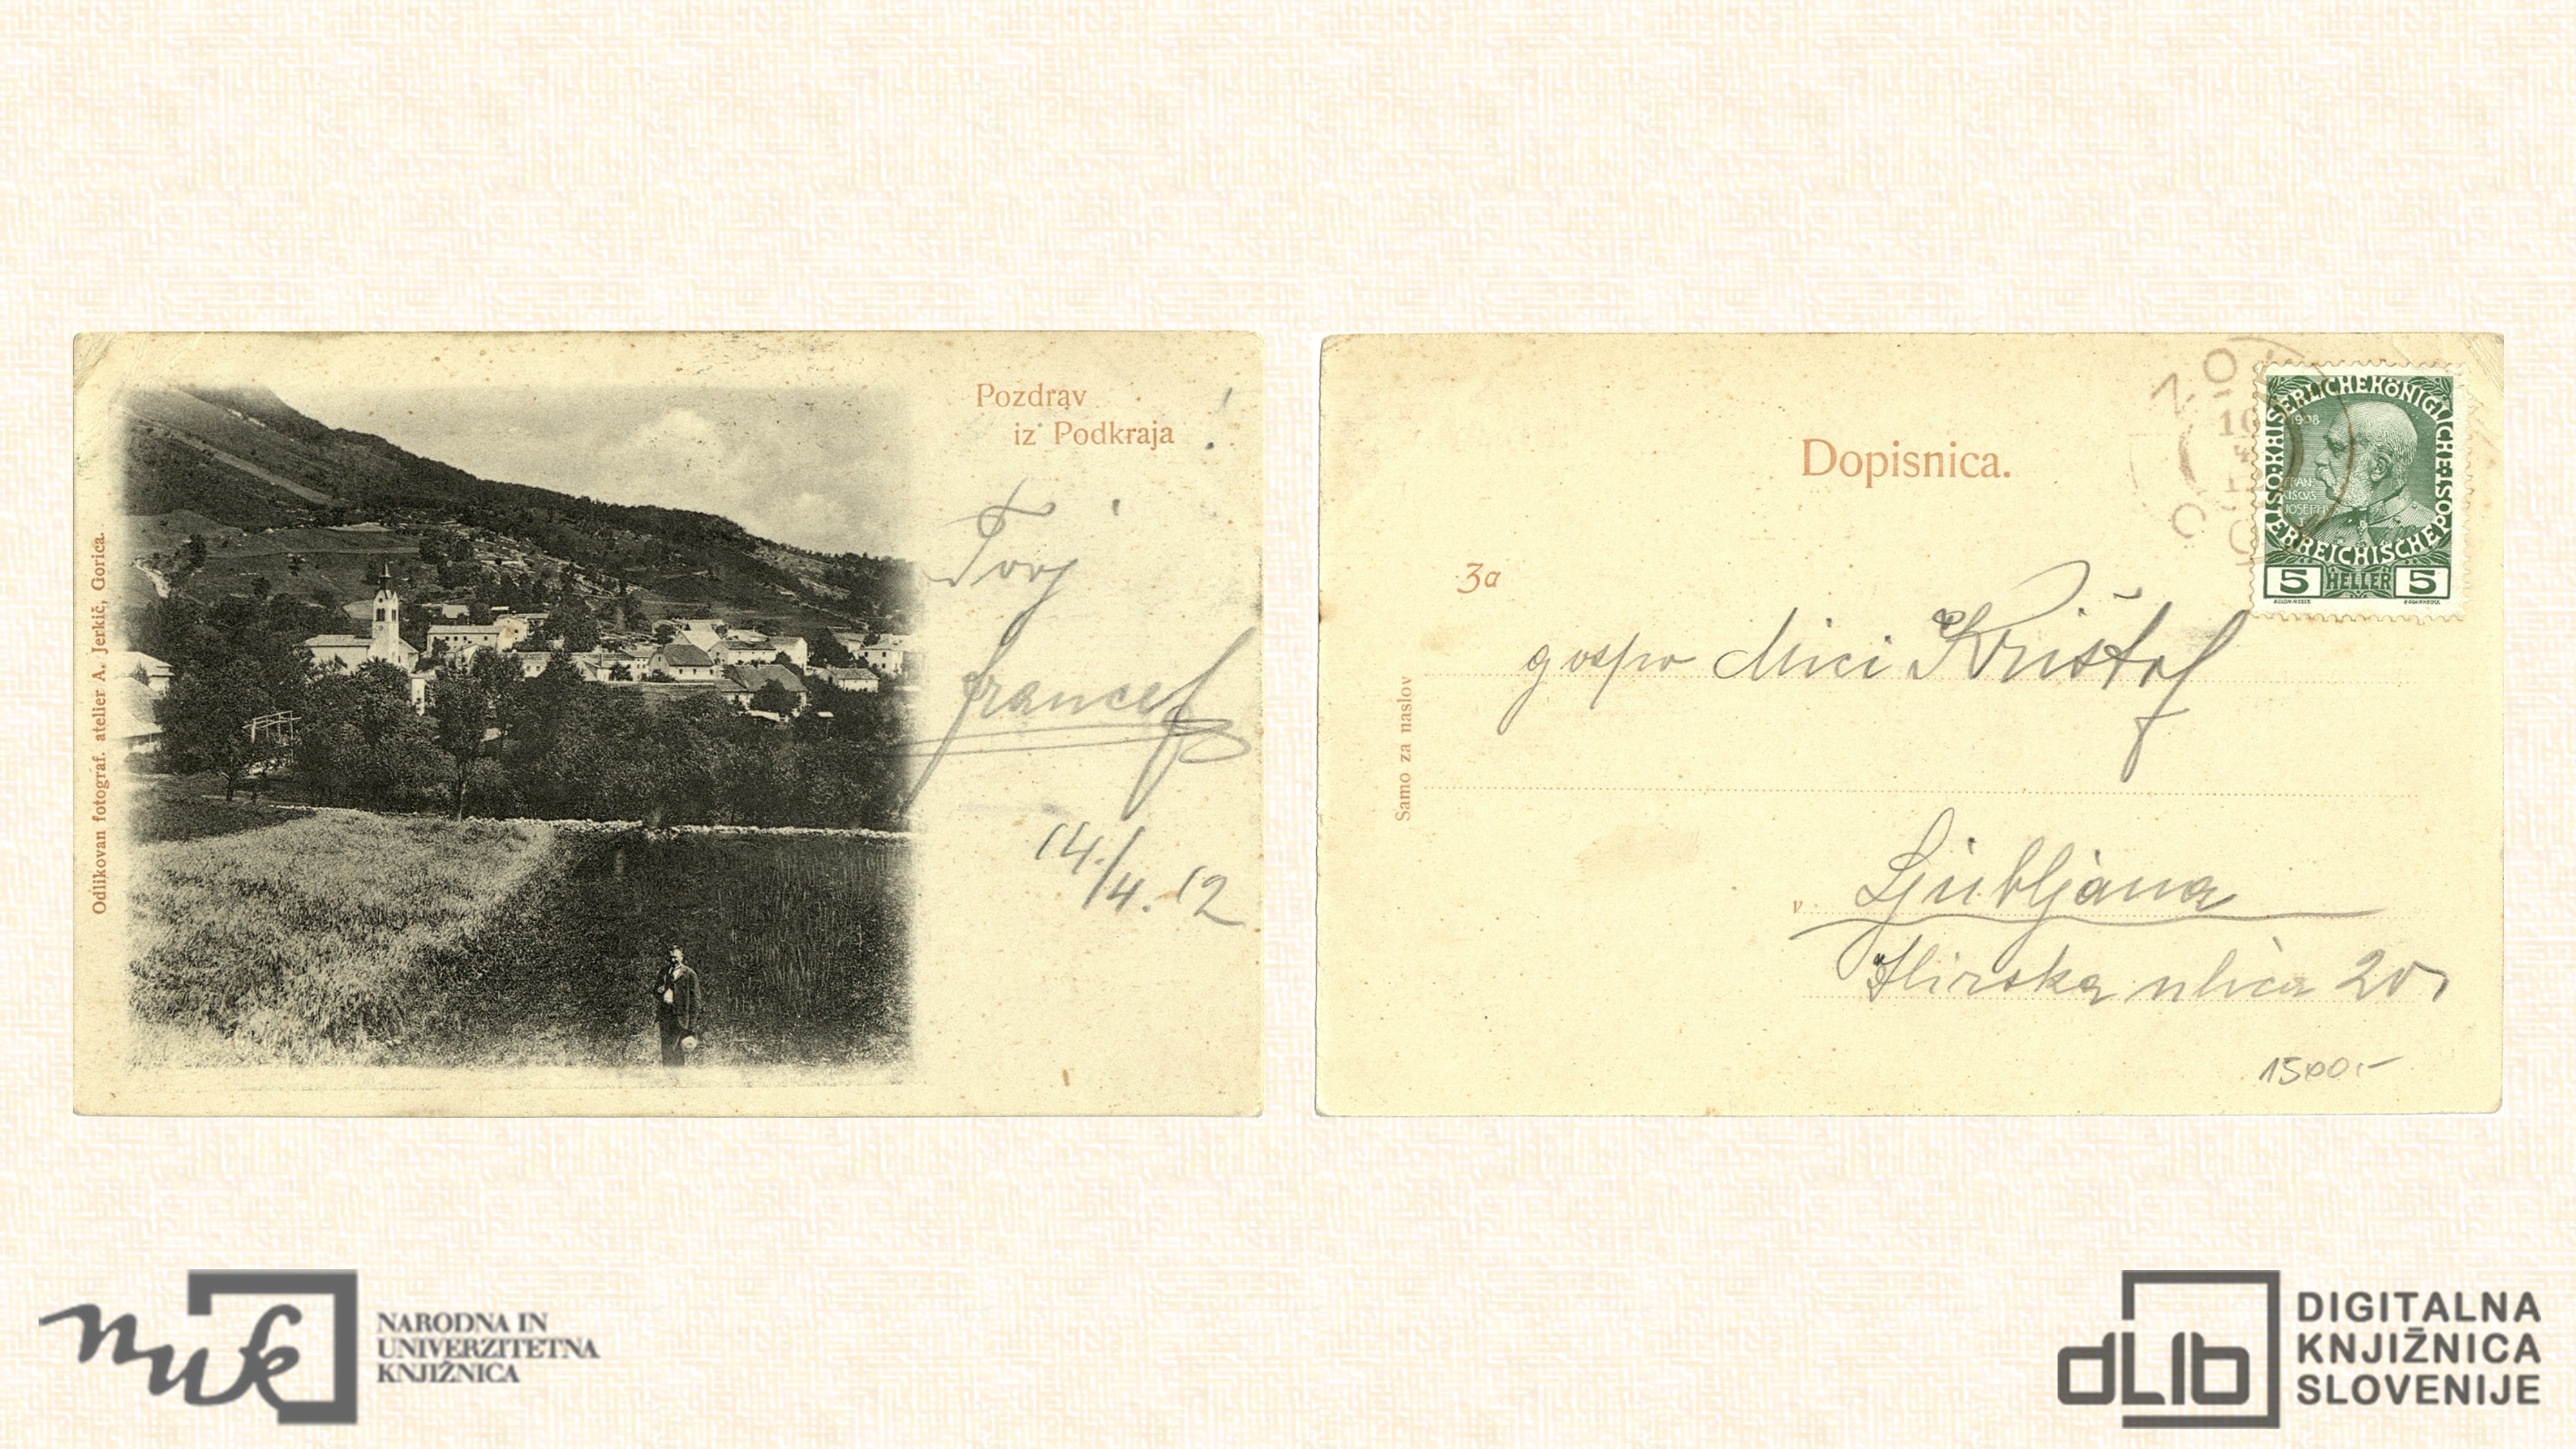 Pozdrav
iz Podkraja !
Tvoj
francef
14./4. 12
Odlikovan fotograf. atelier A. Jerkič, Gorica.
Dopisnica.
Za
gospo Mici Krištof
Samo za naslov
v Ljubljana
Ilirska ulica 20
1500.-
KAISERLICHE KÖNIGLICHE ÖSTERREICHISCHE POST
1908
FRAN
CISCVS
JOSEPHVS
I
5 HELLER 5
10
4
nuk
NARODNA IN
UNIVERZITETNA
KNJIŽNICA
dLib
DIGITALNA
KNJIŽNICA
SLOVENIJE